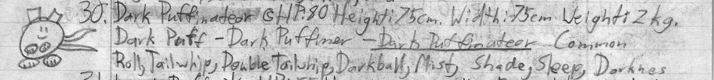 30. Dark Puffinateor @HP:80 Height: 75cm. Width: 75cm Weight: 2kg.
Dark Puff - Dark Puffiner - Dark Puffinateor - Common
Roll, Tailwhip, Double Tailwhip, Darkball, Mist, Shade, Sleep, Darknes